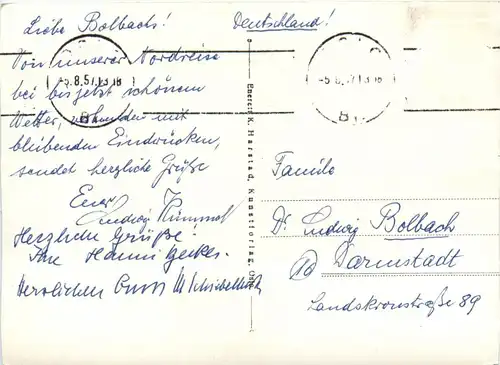 Liebe Bolbachs!
Deutschland!
Von unserer Nordreise
bei bis jetzt schönem
Wetter, verbunden mit
bleibenden Eindrücken,
sendet herzliche Grüße
Euer
Ludwig Himmel
Herzliche Grüße!
Ihre Hanni Gerkes.
Herzlichen Gruss M
OSLO
-5.8.57.13
BY.
OSLO
-5.8.57.13
BY.
Eneret: K. Harstad, Kunstforlag, Oslo
Familie
Dr. Ludwig Bolbach
Darmstadt
Landskronstraße 89